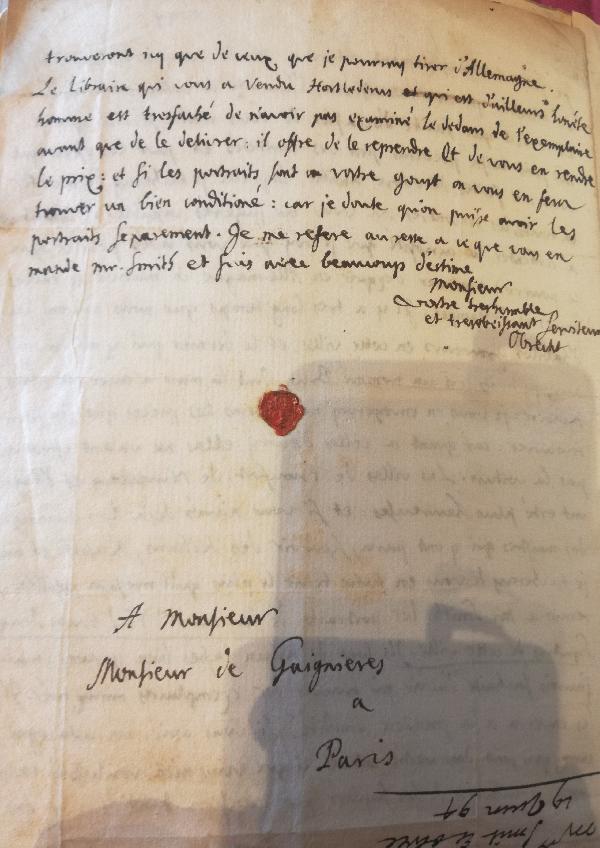 trouveront icy que de ceux que je pourray tirer d'Allemagne.
Le libraire qui vous a vendu Hortlederus et qui est d'ailleurs honéte
homme est tresfaché de n'avoir pas examiné le dedans de l'exemplaire
avant que de le delivrer: il offre de le reprendre Et de vous en rendre
le prix: et si les portraits sont a vostre goust on vous en fera
trouver un bien conditioné: car je doute qu'on puisse avoir les
portraits separement. Je me refere au reste a ce que vous en
mande mr. Smith et suis avec beaucoup d'estime
Monsieur
Vostre treshumble
et tresobeissant serviteur
Obrecht
A Monsieur
Monsieur de Gaignieres
a
Paris